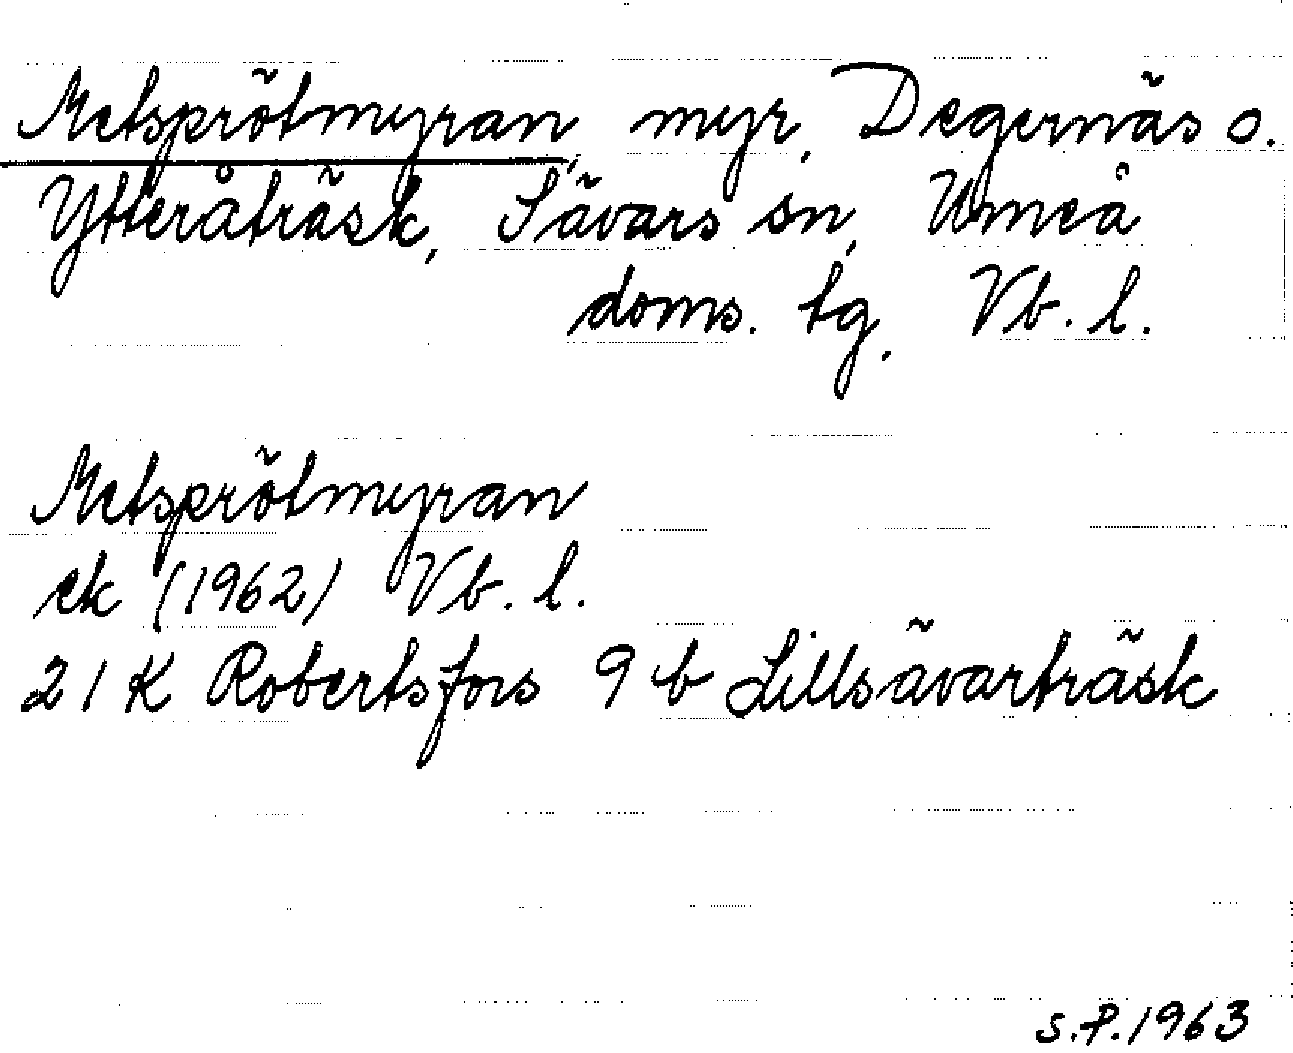 Metsprötmyran, myr, Degernäs o.
Ytteråträsk, Sävars sn, Umeå
doms. tg. Vb. l.
Metsprötmyran
ek (1962) Vb. l.
21K Robertsfors 9 b Lillsävarträsk
S.P. 1963